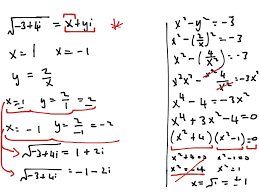 √-3+4i = x+yi *
x=1 x=-1
y = 2/x
x=1 y = 2/1 = 2
x=-1 y = 2/-1 = -2
√-3+4i = 1+2i
√-3+4i = -1-2i
x²-y² = -3
x²-(2/x)² = -3
x²-(4/x²) = -3
x²x²- 4/x² x² = -3x²
x⁴-4 = -3x²
x⁴+3x²-4=0
(x²+4)(x²-1)=0
x²+4=0 x²-1=0
x²=-4 x²=1
x=√1 = ±1